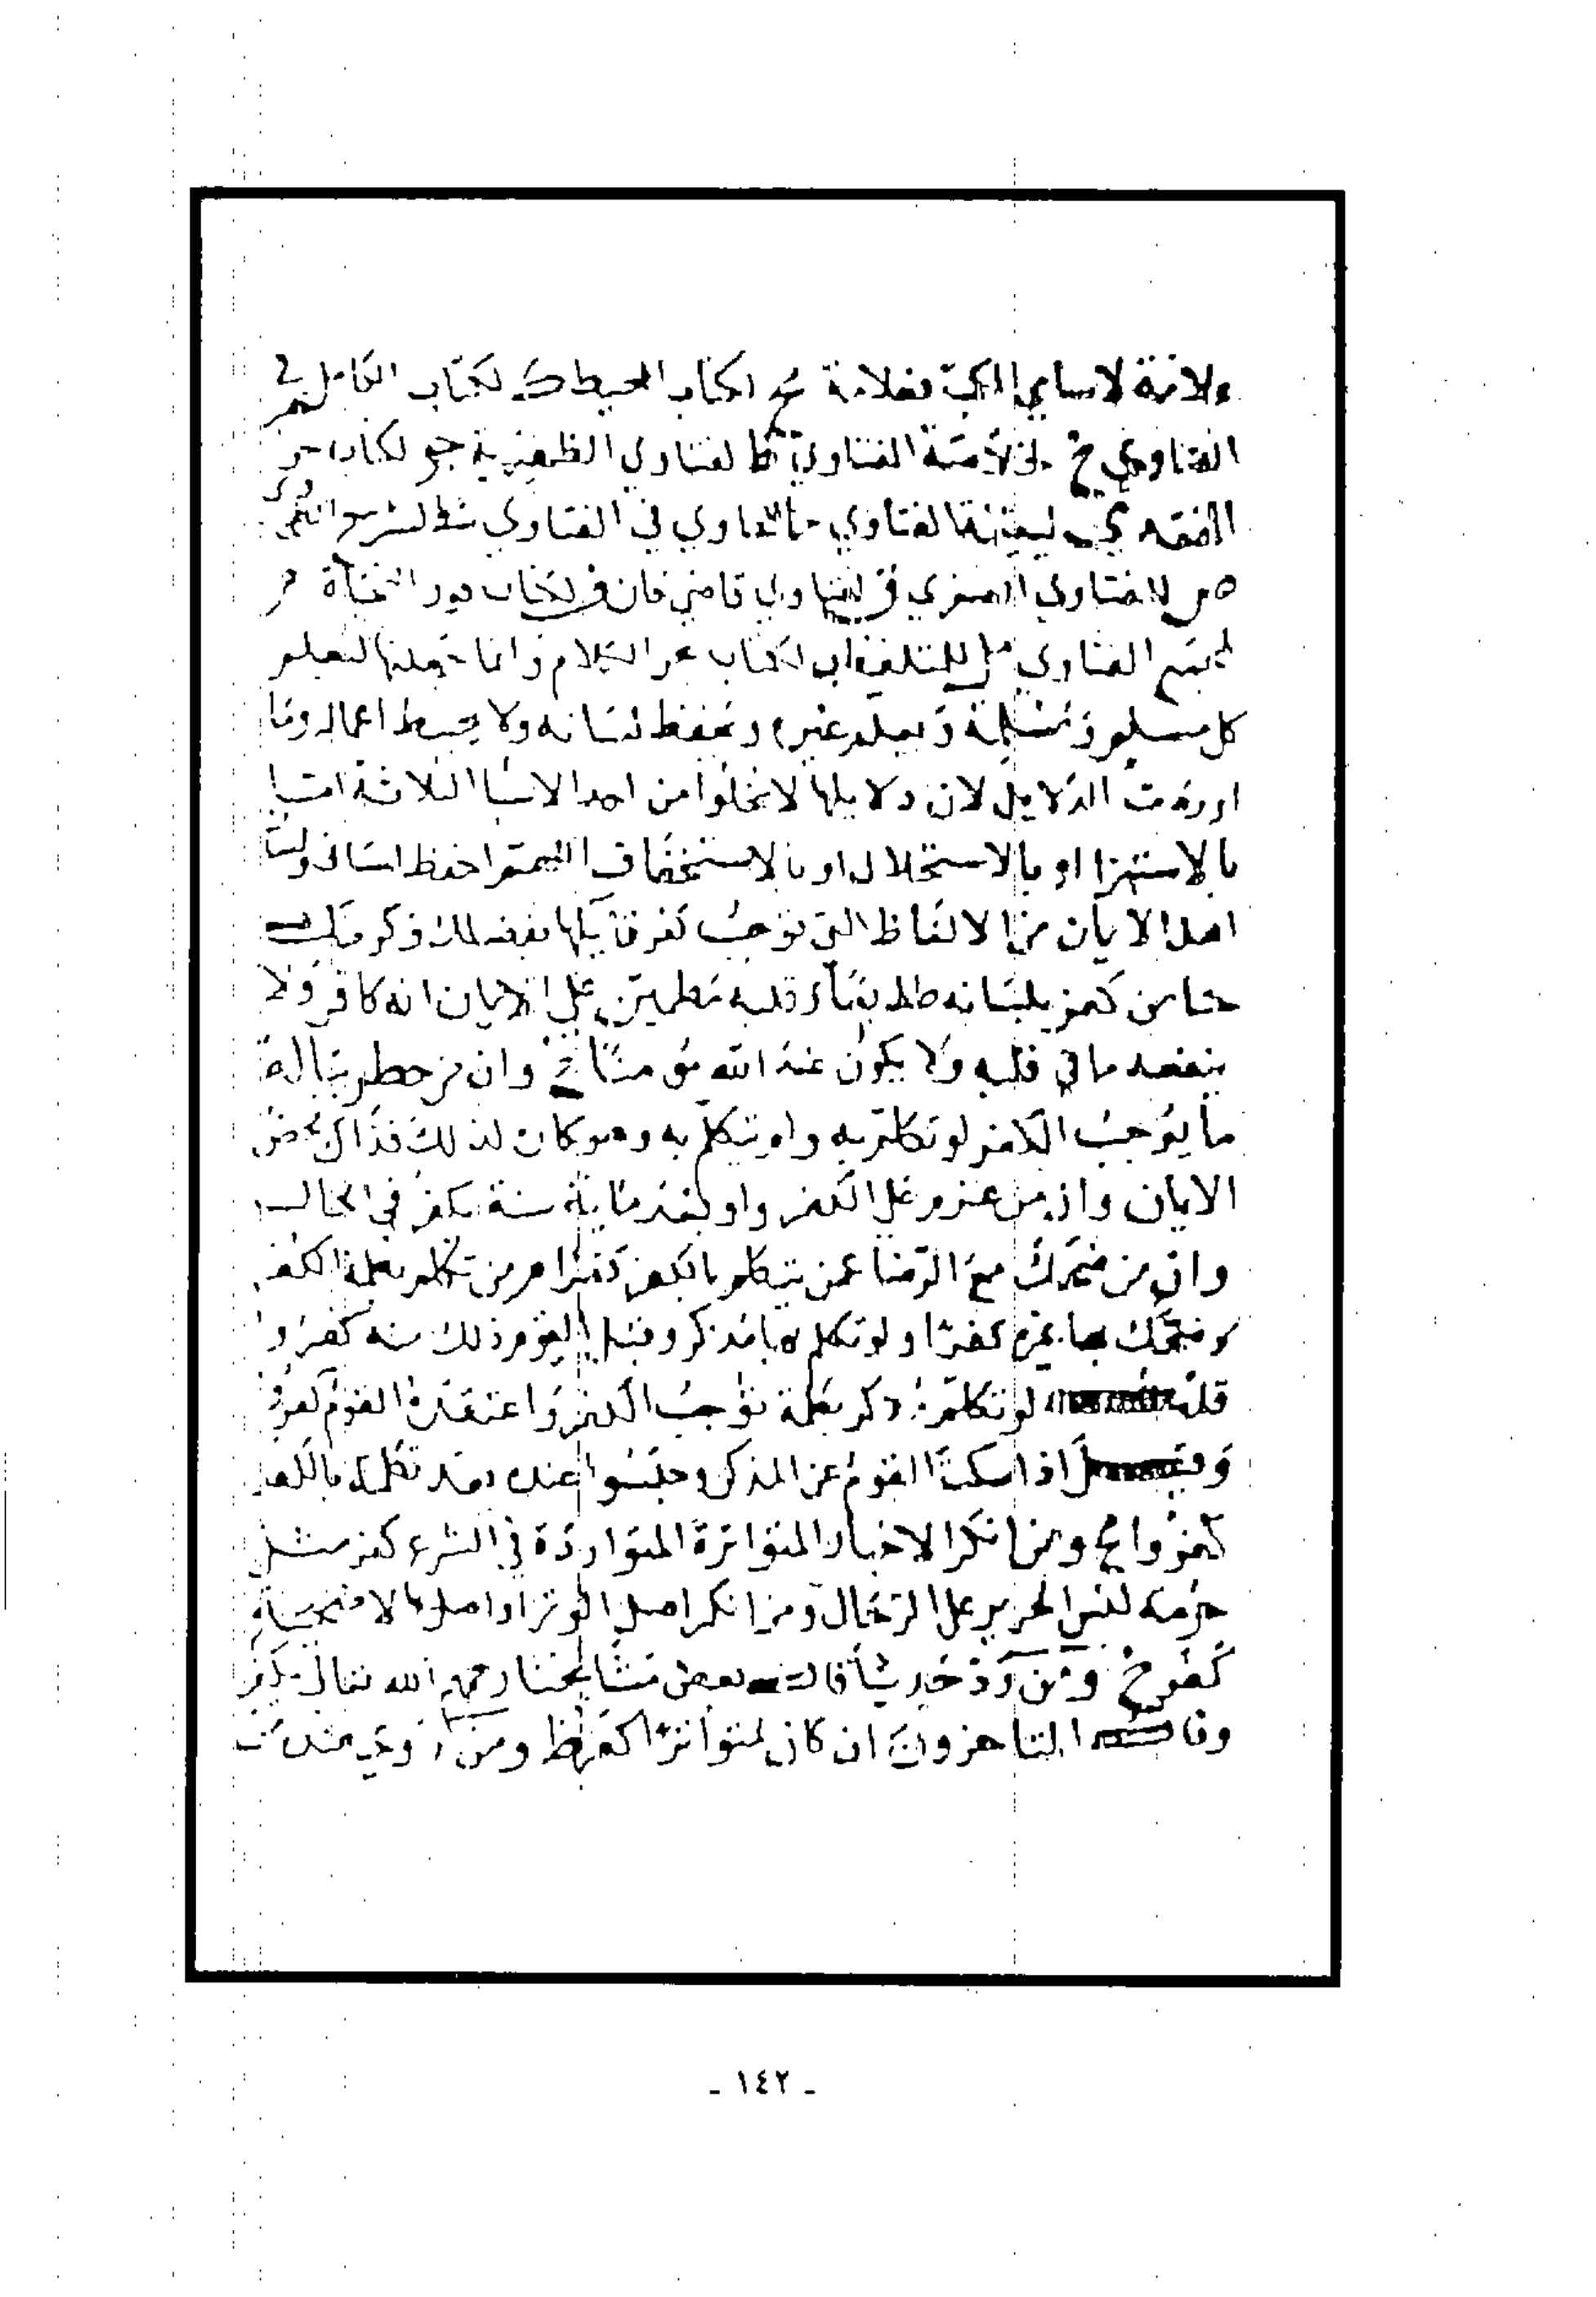 علامة لاسامي الكتب فعلامة مح لكتاب المحيط ك لكتاب الكامل في
الفتاوي خ لخلاصة الفتاوي ظ لفتاوي الظهيرية جو لكتاب
الفقه ي ليتيمة الفتاوي حا للحاوي في الفتاوي شط لشرح
ص للفتاوي الصغري ق لفتاوي قاضي خان ف لكتاب فور النجاة
لمجمع الفتاوي للملتقط لكتاب بحر الكلام وانما جعلتها لتعلم
كل مسلم ومسلمة ويعلم غيره ويحفظ لسانه ولا يحبط اعماله وما
اوردت الدلايل لان دلايلها لا تخلوا من احد الاشيا الثلاثة اما
بالاستهزا او بالاستحلال او بالاستخفاف اللهم احفظ لساني ولسان
اهل الايمان من الالفاظ التي توجب كفر قايلها بفضلك وكرمك
حا من كفر بلسانه طايعا وقلبه مطمين علي الايمان انه كافر ولا
ينفعه ما في قلبه ولا يكون عند الله مؤمنا مح وان من خطر بباله
ما يوجب الكفر لو تكلم به ولم يتكلم به وهو كاره لذلك فذاك محض
الايمان وان من عزم علي الكفر ولو بعد ماية سنة يكفر في الحال
وان من ضحك مع الرضا عمن يتكلم بالكفر كفر ومن تكلم بكلمة الكفر
وضحك بها غيره كفرا ولو تكلم بها مذكر وقبل القوم ذلك منه كفروا
قلت لو تكلم مذكر بكلمة توجب الكفر واعتقده القوم كفروا
وقيل اذا سكت القوم عن المذكر وجلسوا عنده بعد تكلمه بالكفر
كفروا مح ومن انكر الاخبار المتواترة المتواردة في الشرع كفر مثل
حرمة لبس الحرير علي الرجال ومن انكر اصل الوتر او اصل الاضحية
كفر خ ومن رد حديثا قال بعض مشايخنا رحمهم الله تعالي يكفر
وقال المتاخرون ان كان متواترا كفر ظ ومن روي عنده
- ١٤٢ -